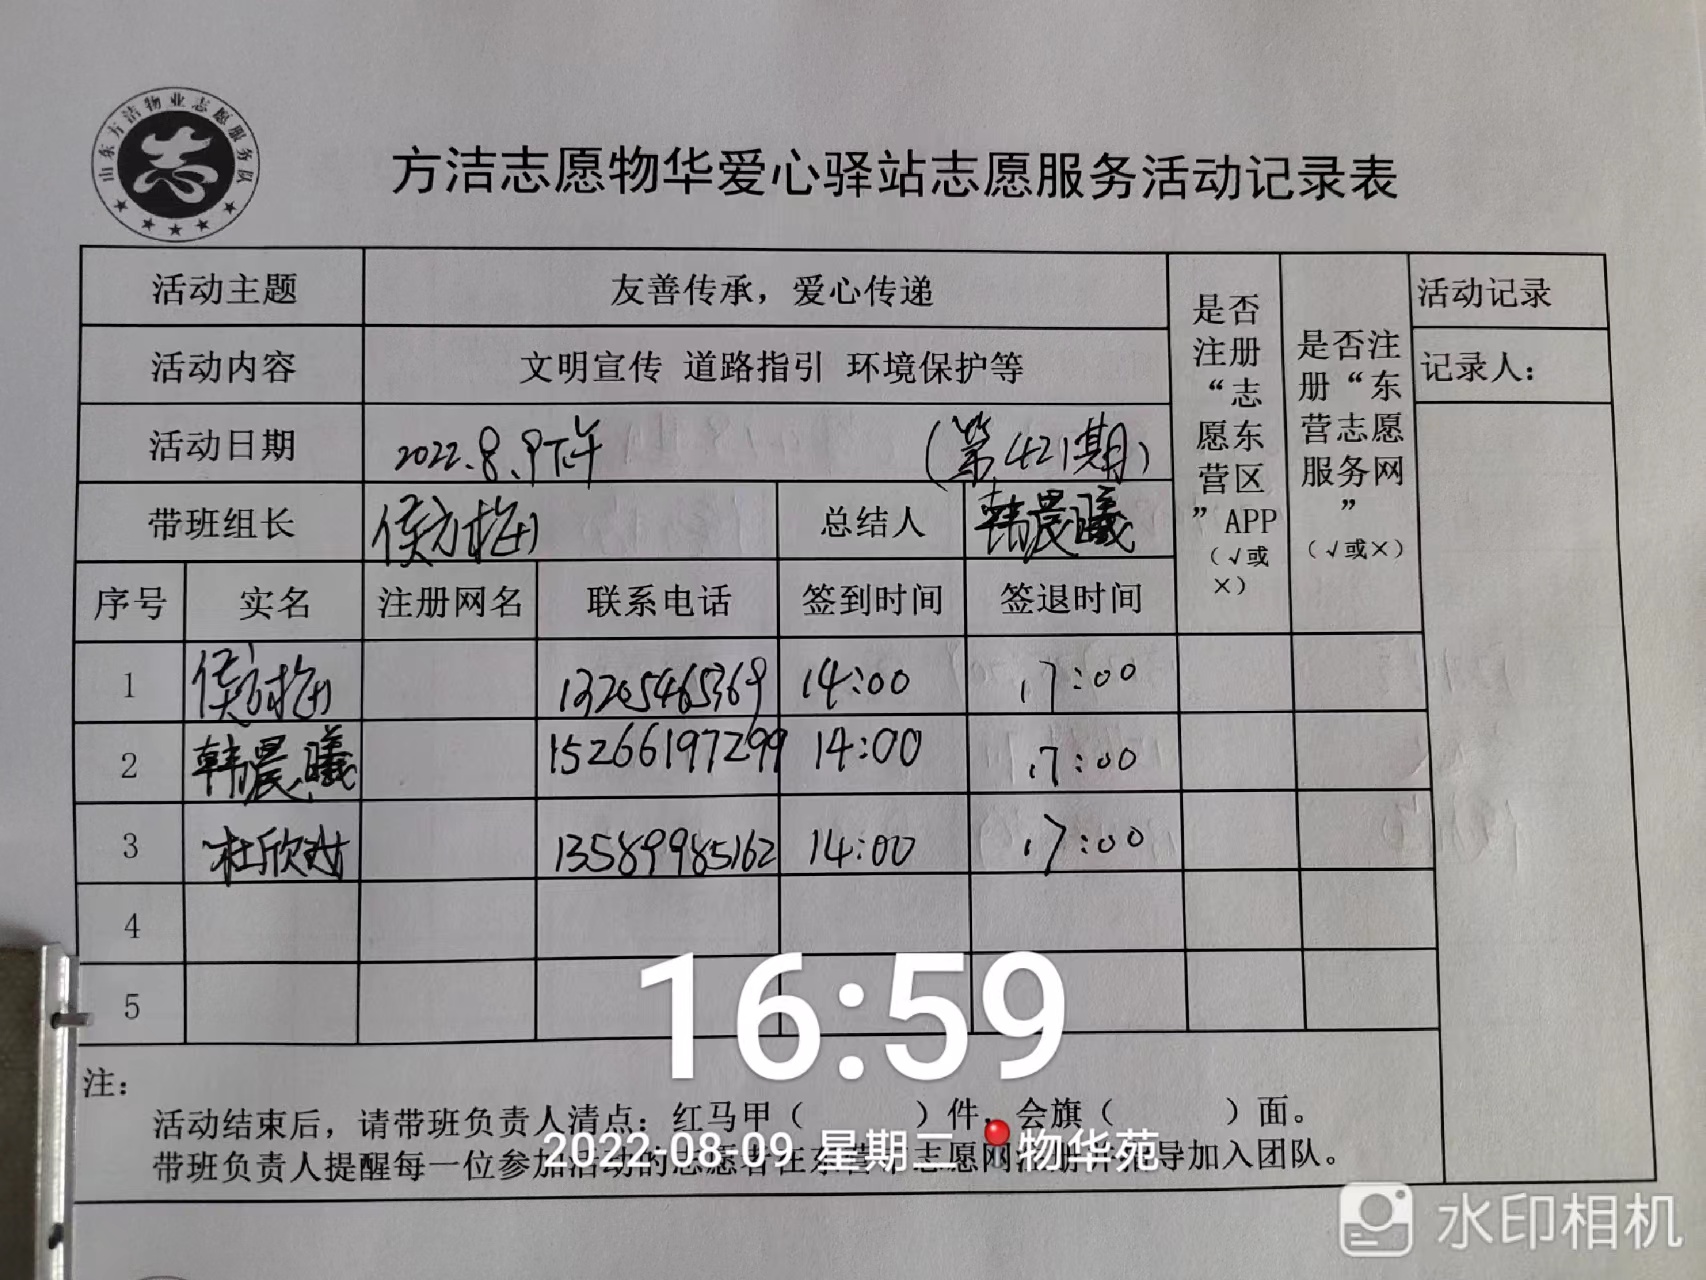 山东方洁物业志愿服务队
方洁志愿物华爱心驿站志愿服务活动记录表
活动主题 友善传承，爱心传递 是否注册“志愿东营区”APP（√或×） 是否注册“东营志愿服务网”（√或×） 活动记录
活动内容 文明宣传 道路指引 环境保护等 记录人：
活动日期 2022.8.9下午 （第421期）
带班组长 侯方梅 总结人 韩晨曦
序号 实名 注册网名 联系电话 签到时间 签退时间
1 侯方梅 13205465369 14:00 17:00
2 韩晨曦 15266197299 14:00 17:00
3 杜欣 13589985162 14:00 17:00
4
5
16:59
注：
活动结束后，请带班负责人清点：红马甲（ ）件，会旗（ ）面。
2022-08-09 星期二 物华苑
带班负责人提醒每一位参加活动的志愿者在东营市志愿网注册并指导加入团队。
水印相机